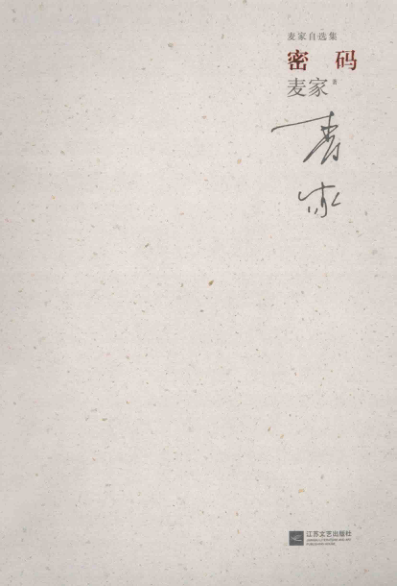 麦家自选集
密码
麦家 著
麦家
江苏文艺出版社